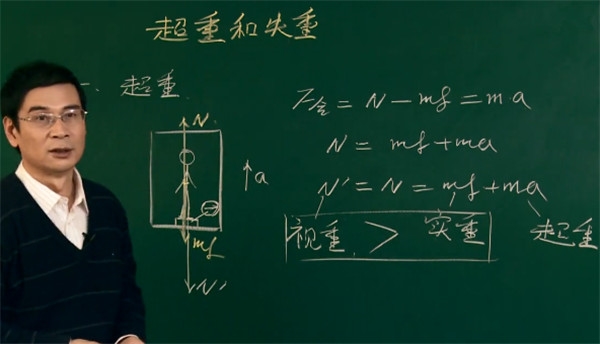 超重和失重
一. 超重
N
a
mg
N'
F合 = N - mg = ma
N = mg + ma
N' = N = mg + ma
视重 > 实重 超重